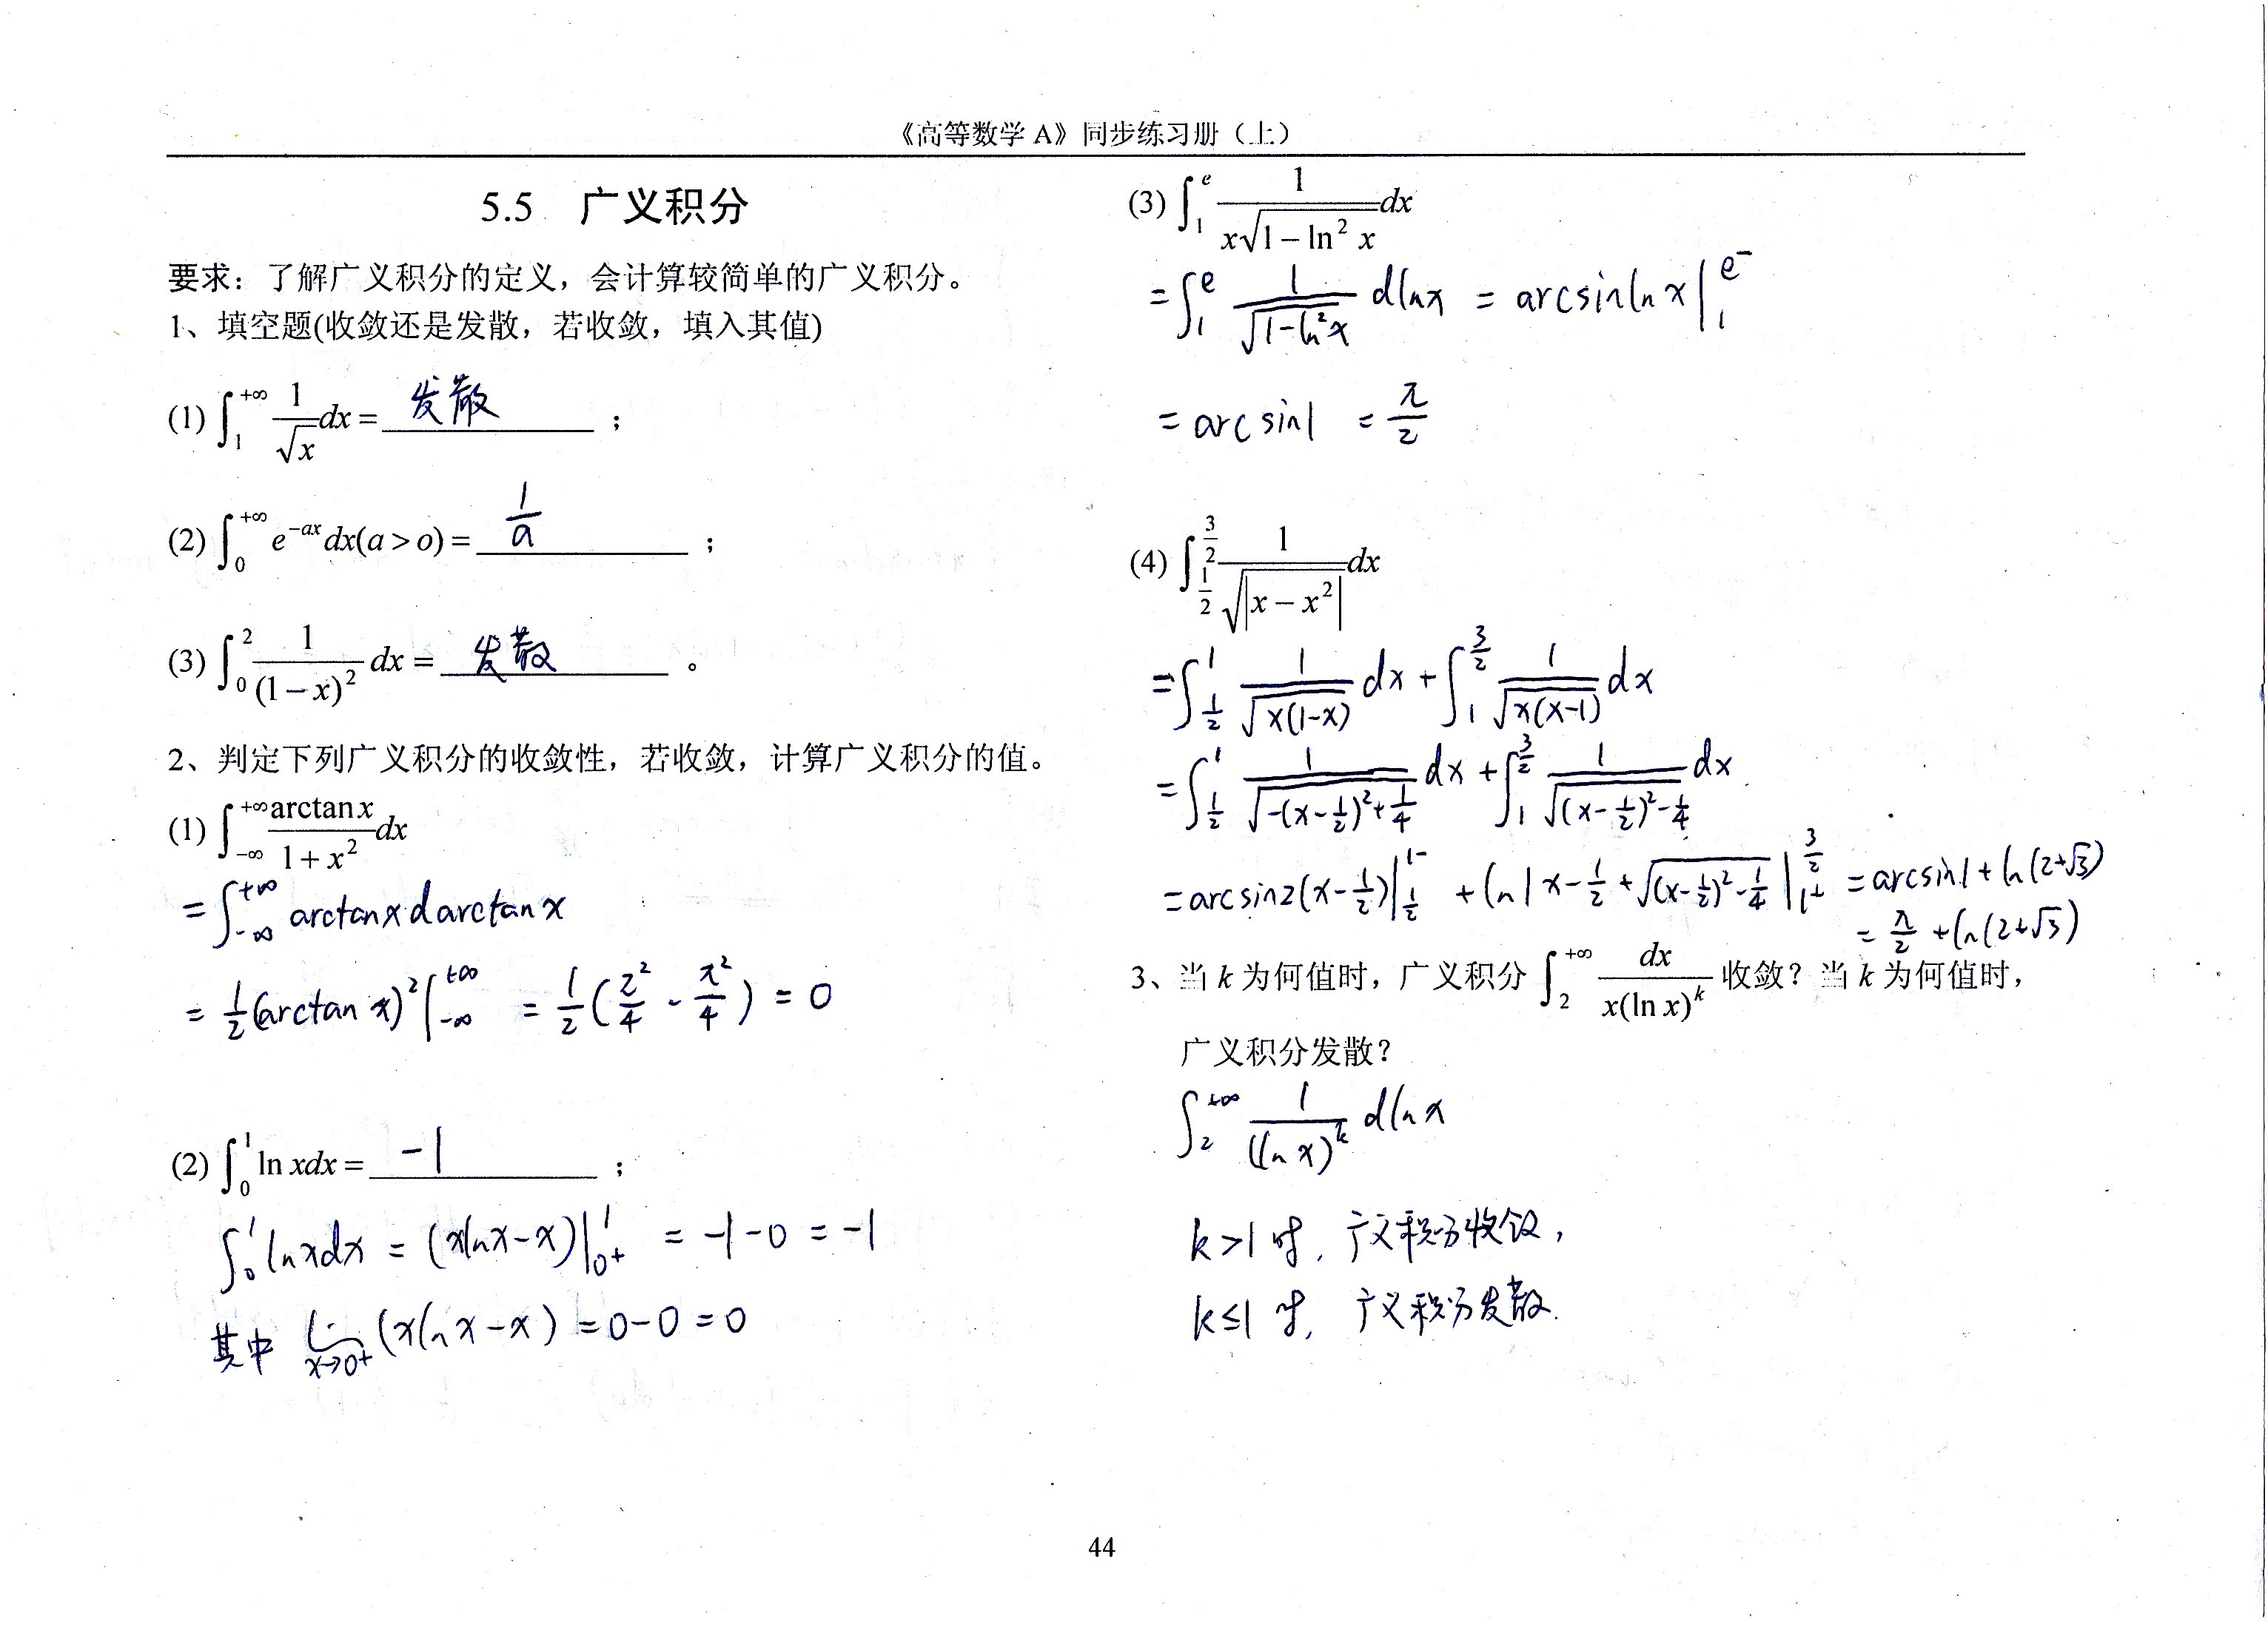 《高等数学 A》同步练习册（上）
5.5 广义积分
要求：了解广义积分的定义，会计算较简单的广义积分。
1、填空题(收敛还是发散，若收敛，填入其值)
(1) ∫_1^{+∞} 1/√x dx = 发散 ；
(2) ∫_0^{+∞} e^{-ax} dx(a > o) = 1/a ；
(3) ∫_0^2 1/(1-x)^2 dx = 发散 。
2、判定下列广义积分的收敛性，若收敛，计算广义积分的值。
(1) ∫_{-∞}^{+∞} arctan x/(1+x^2) dx
= ∫_{-∞}^{+∞} arctanx d arctanx
= 1/2 (arctan x)^2 |_{-∞}^{+∞} = 1/2 (π^2/4 - π^2/4) = 0
(2) ∫_0^1 ln xdx = -1 ；
∫_0^1 lnxdx = (xlnx-x)|_{0+}^1 = -1-0 = -1
其中 lim_{x→0+} (xlnx-x) = 0-0 = 0
(3) ∫_1^e 1/(x√(1-ln^2 x)) dx
= ∫_1^e 1/√(1-ln^2 x) dlnx = arcsinlnx |_1^{e^-}
= arcsin1 = π/2
(4) ∫_{1/2}^{3/2} 1/√|x-x^2| dx
= ∫_{1/2}^1 1/√(x(1-x)) dx + ∫_1^{3/2} 1/√(x(x-1)) dx
= ∫_{1/2}^1 1/√(-(x-1/2)^2+1/4) dx + ∫_1^{3/2} 1/√((x-1/2)^2-1/4) dx
= arcsin2(x-1/2)|_{1/2}^{1-} + ln|x-1/2+√((x-1/2)^2-1/4)|_{1+}^{3/2} = arcsin1+ln(2+√3)
= π/2 + ln(2+√3)
3、当 k 为何值时，广义积分 ∫_2^{+∞} dx/(x(ln x)^k) 收敛？当 k 为何值时，
广义积分发散？
∫_2^{+∞} 1/(ln x)^k dlnx
k>1 时，广义积分收敛，
k≤1 时，广义积分发散.
44